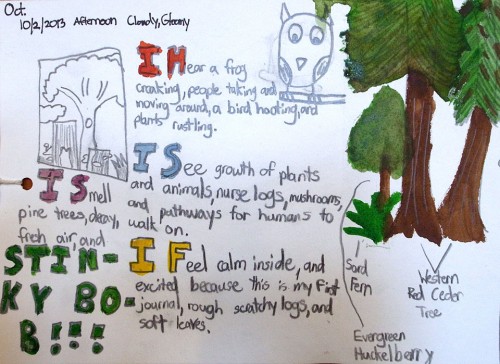 Oct.
10/2/2013 Afternoon Cloudy, Gloomy
I Hear a frog
croaking, people taking and
moving around, a bird hooting, and
plants rustling.
I See growth of plants
and animals, nurse logs, mushrooms,
and pathways for humans to
walk on.
I Smell
pine trees, decay,
fresh air, and
STIN-
KY BO-
B!!!
I Feel calm inside, and
excited because this is my first
journal, rough scratchy logs, and
soft leaves.
Sord
Fern
Evergreen
Huckelberry
Western
Red Ceder
Tree